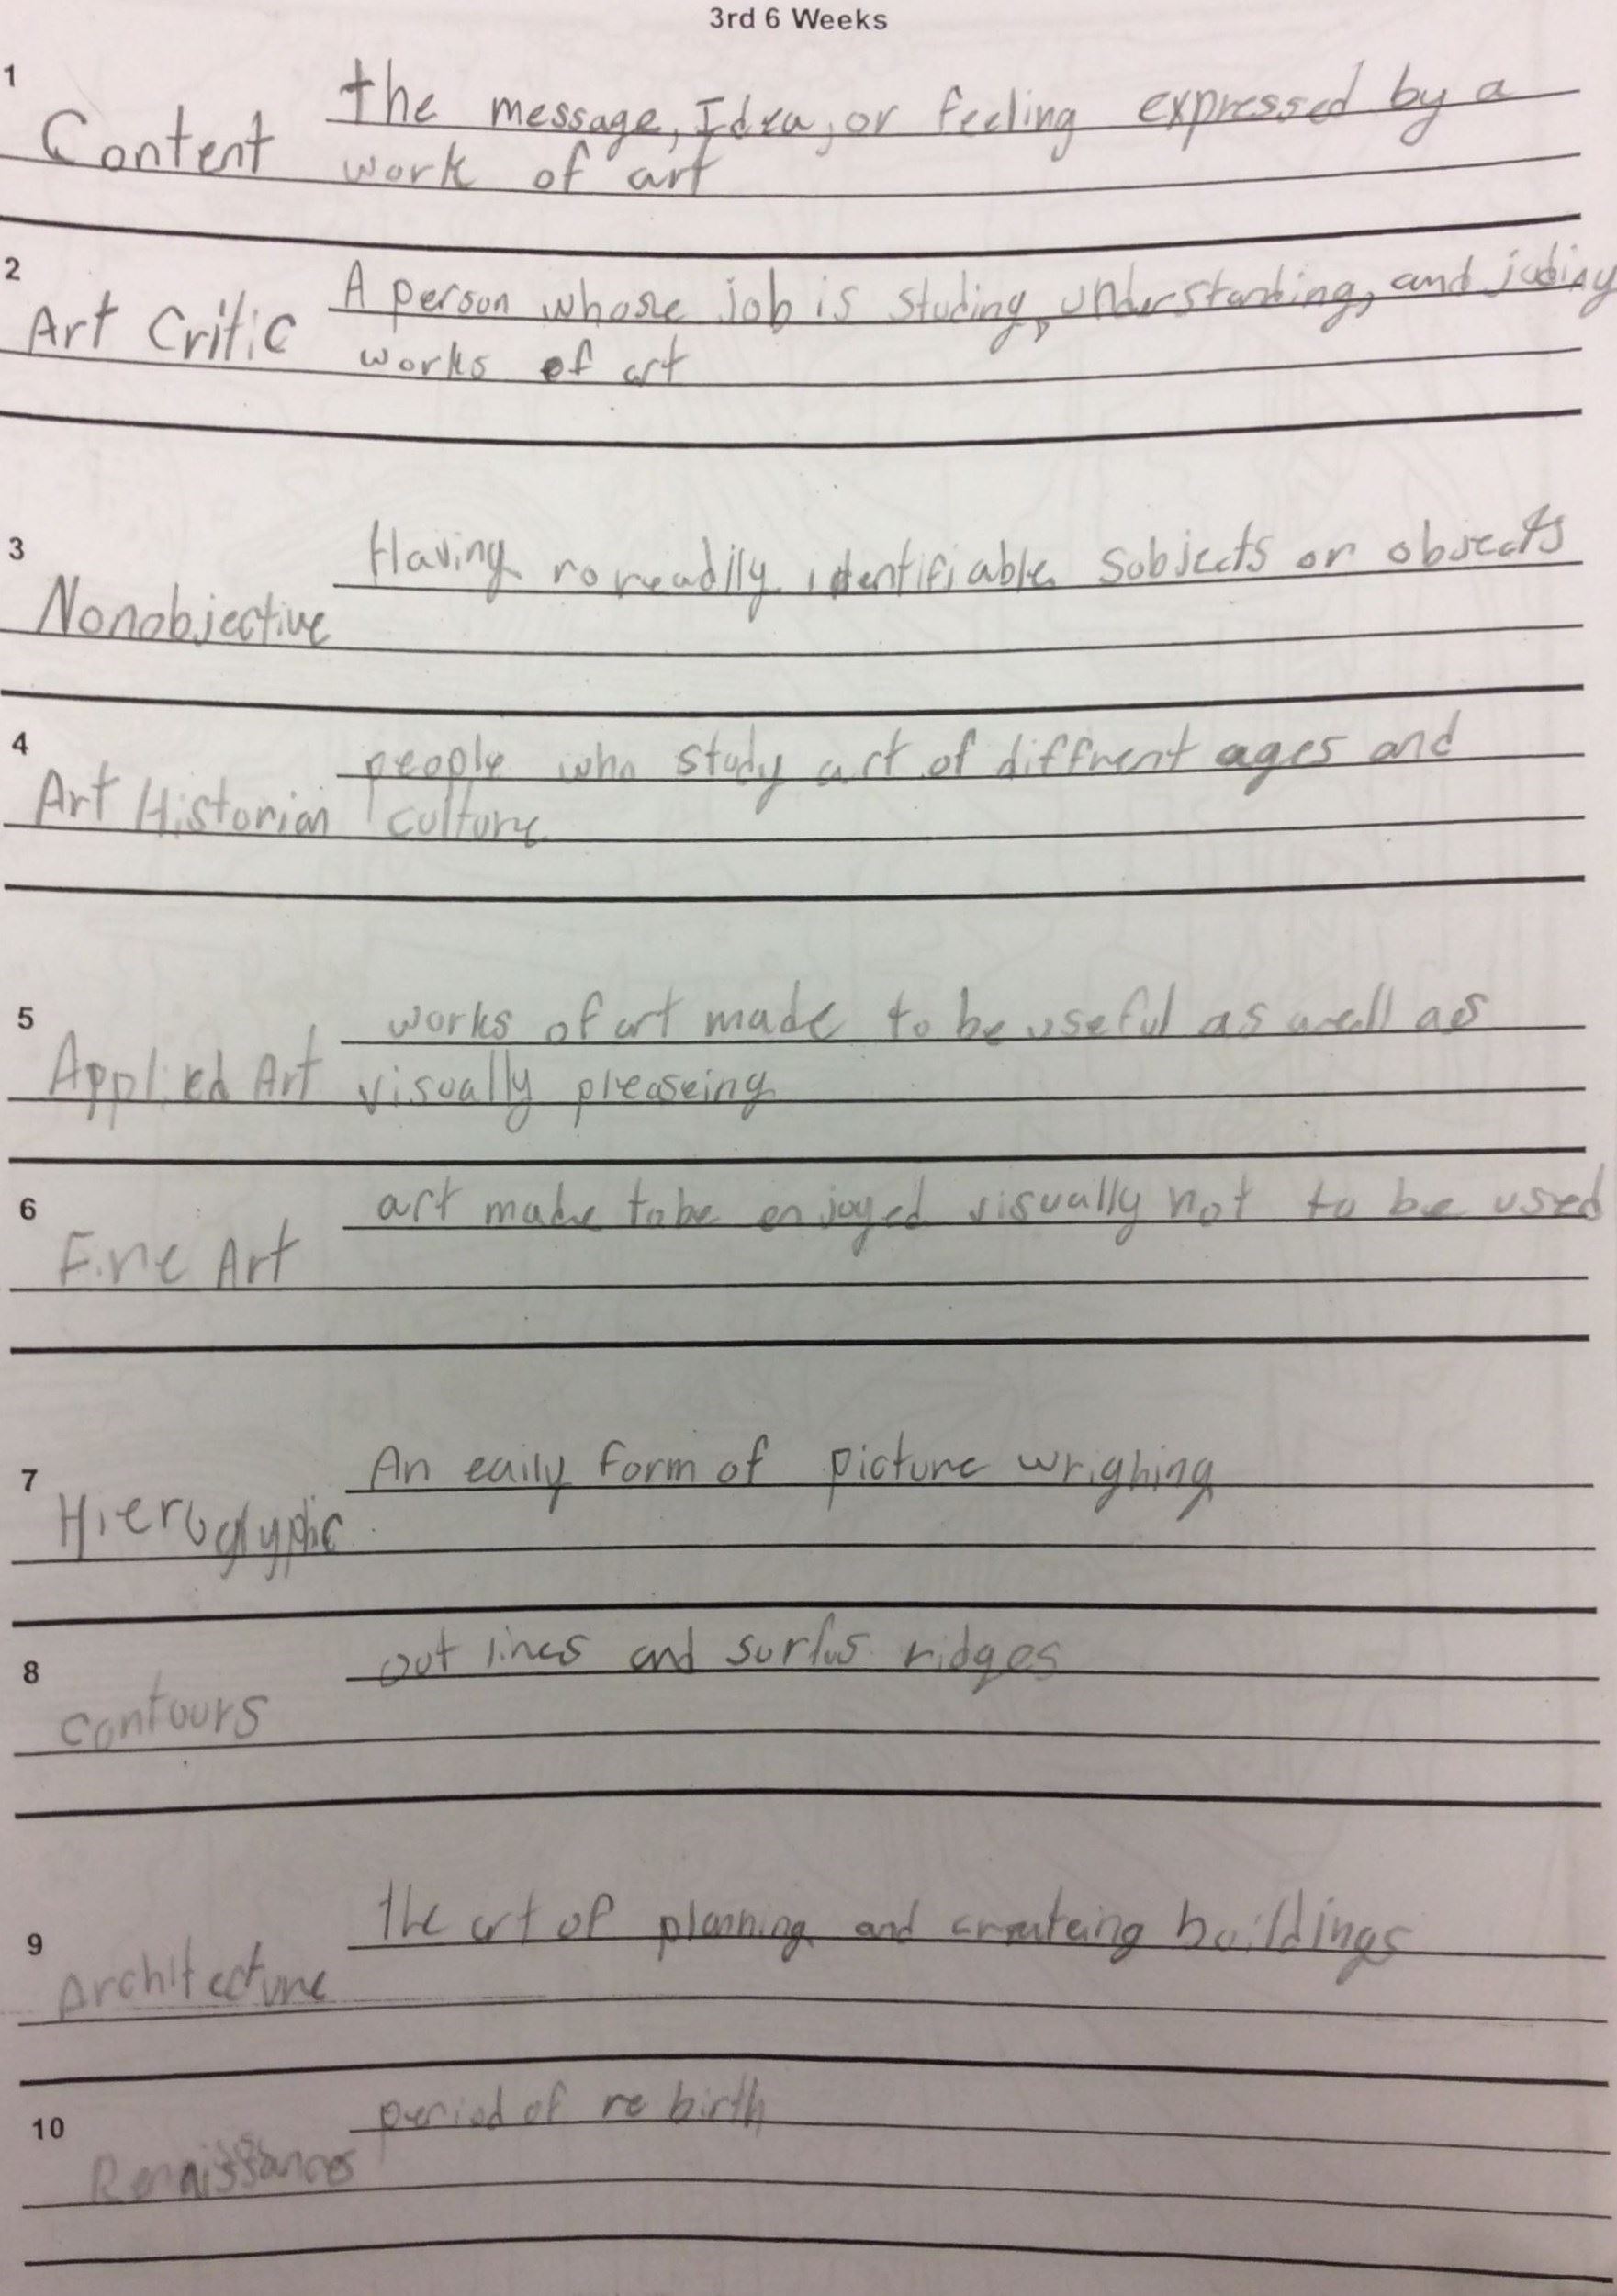 3rd 6 Weeks
1
the message, Idea, or feeling expressed by a
Content work of art
2
A person whose job is studing, understanding, and judiny
Art Critic works of art
3
Having no readily identifiable Subjects or objects
Nonobjective
4
people who study art of diffrent ages and
Art Historian culture
5
works of art made to be useful as well as
Applied Art visually pleaseing
6
art made to be enjoyed visually not to be used
Fine Art
7
An eaily form of picture wrighing
Hieroglyphic
8
out lines and surfus ridges
contours
9
the art of planning and createing buildings
Architecture
10
period of re birth
Renaissances